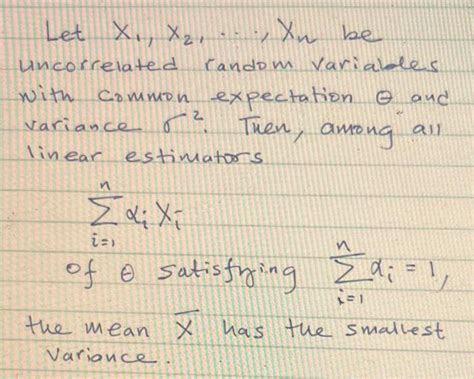 Let X₁, X₂, ..., Xn be
uncorrelated random variables
with common expectation θ and
variance σ². Then, among all
linear estimators
n
∑ αᵢ Xᵢ
i=1
of θ satisfying n∑i=1 αᵢ = 1,
the mean X̄ has the smallest
variance.